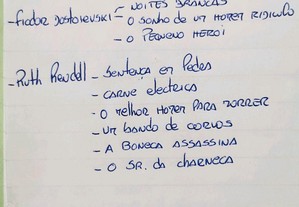 NOITES BRANCAS
-Fiodor Dostoievski - O SONHO DE UM HOMEM RIDICULO
- O PEQUENO HEROI
-Ruth Rendell - SENTENÇA EM PEDRA
- CARNE ELECTRICA
- O MELHOR HOMEM PARA MORRER
- UM BANDO DE CORVOS
- A BONECA ASSASSINA
- O SR. DA CHARNECA